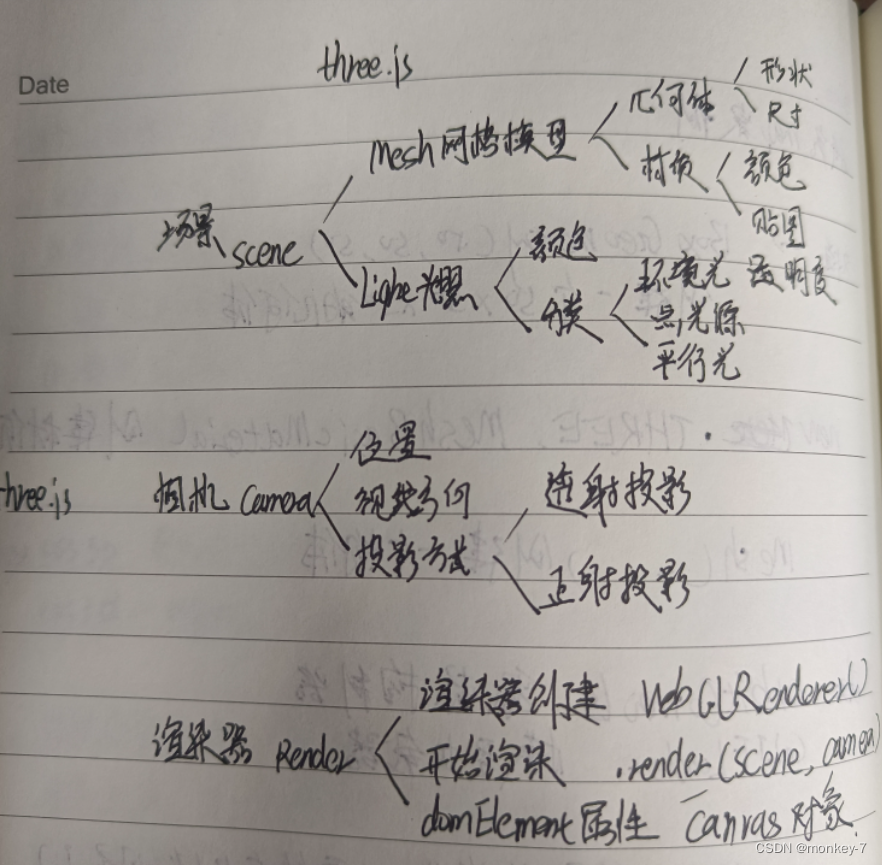 Date
three.js
形状
几何体
尺寸
Mesh网格模型
材质
颜色
贴图
透明度
场景 scene
颜色
Light光照
分类
环境光
点光源
平行光
位置
three.js 相机 Camera
投影方式
透射投影
正射投影
渲染器创建 WebGLRenderer()
渲染器 Render 开始渲染 .render(scene, camea)
domElement属性 Canvas对象.
CSDN @monkey-7